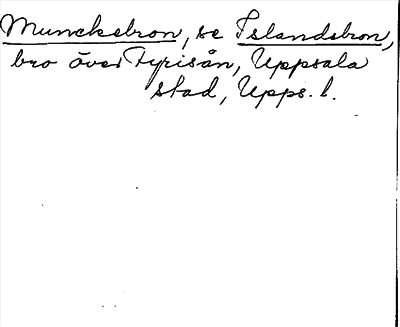 Muncksbron, se Islandsbron,
bro över Fyrisån, Uppsala
stad, Upps. l.